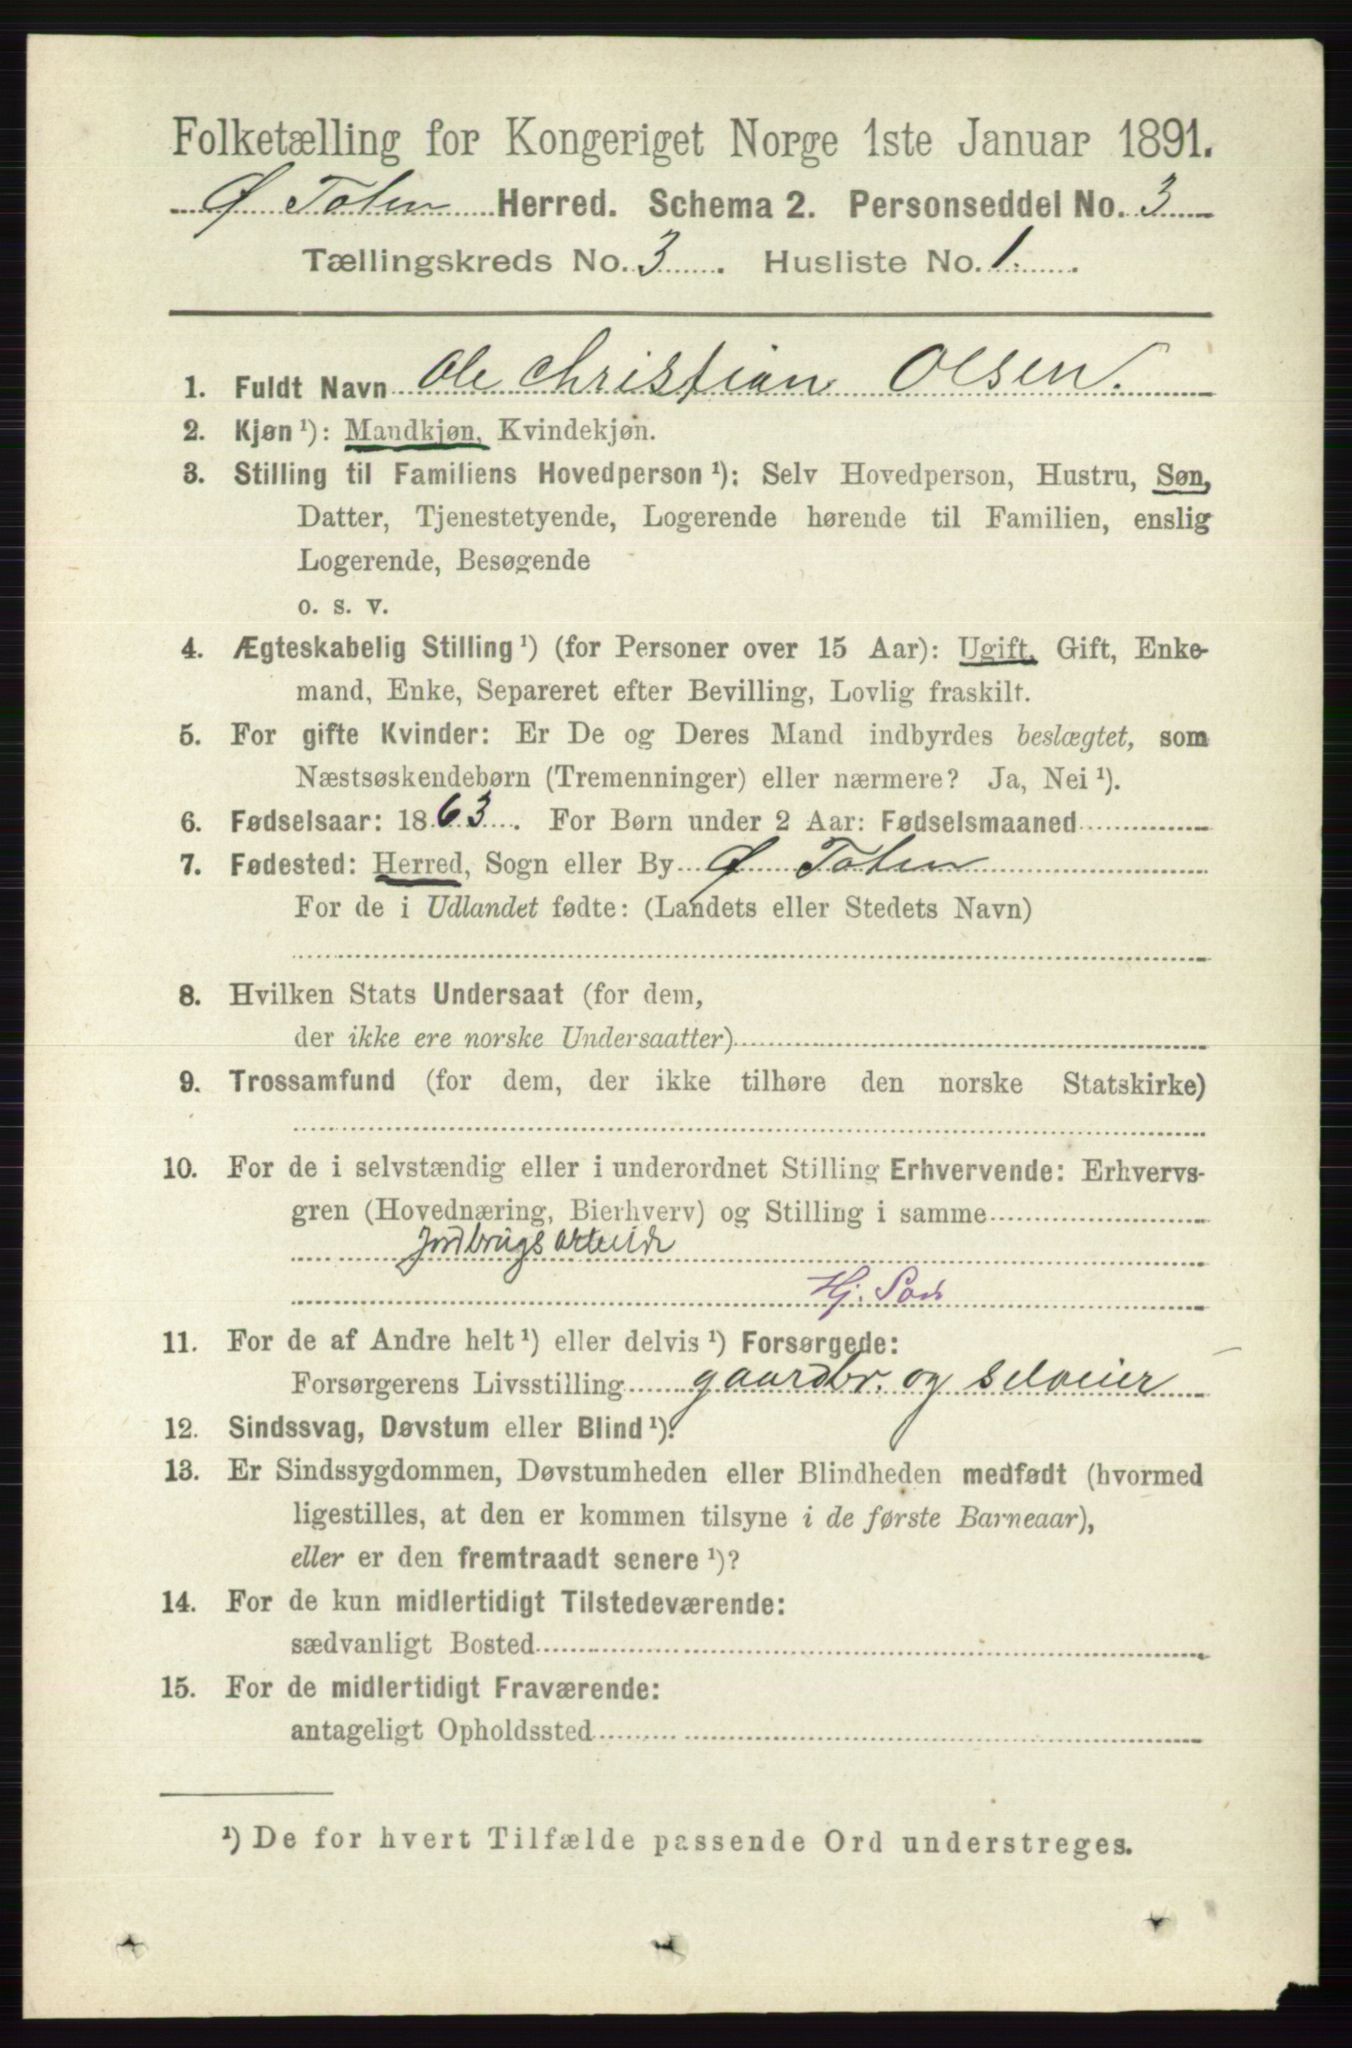 Folketælling for Kongeriget Norge 1ste Januar 1891.
Ø. Toten Herred. Schema 2. Personseddel No. 3
Tællingskreds No. 3. Husliste No. 1.
1. Fuldt Navn Ole Christian Olsen.
2. Kjøn¹): Mandkjøn, Kvindekjøn.
3. Stilling til Familiens Hovedperson¹): Selv Hovedperson, Hustru, Søn,
Datter, Tjenestetyende, Logerende hørende til Familien, enslig
Logerende, Besøgende
o. s. v.
4. Ægteskabelig Stilling¹) (for Personer over 15 Aar): Ugift, Gift, Enke-
mand, Enke, Separeret efter Bevilling, Lovlig fraskilt.
5. For gifte Kvinder: Er De og Deres Mand indbyrdes beslægtet, som
Næstsøskendebørn (Tremenninger) eller nærmere? Ja, Nei¹).
6. Fødselsaar: 1863. For Børn under 2 Aar: Fødselsmaaned
7. Fødested: Herred, Sogn eller By Ø Toten
For de i Udlandet fødte: (Landets eller Stedets Navn)
8. Hvilken Stats Undersaat (for dem,
der ikke ere norske Undersaatter)
9. Trossamfund (for dem, der ikke tilhøre den norske Statskirke)
10. For de i selvstændig eller i underordnet Stilling Erhvervende: Erhvervs-
gren (Hovednæring, Bierhverv) og Stilling i samme
Jordbrugsarbeide
Hj. Søn
11. For de af Andre helt¹) eller delvis¹) Forsørgede:
Forsørgerens Livsstilling gaardbr. og selveier
12. Sindssvag, Døvstum eller Blind¹).
13. Er Sindssygdommen, Døvstumheden eller Blindheden medfødt (hvormed
ligestilles, at den er kommen tilsyne i de første Barneaar),
eller er den fremtraadt senere¹)?
14. For de kun midlertidigt Tilstedeværende:
sædvanligt Bosted
15. For de midlertidigt Fraværende:
antageligt Opholdssted
¹) De for hvert Tilfælde passende Ord understreges.